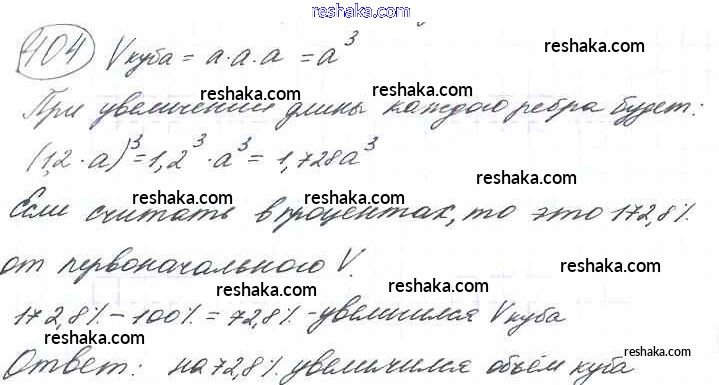 reshaka.com
404 V куба = a·a·a = a³
reshaka.com reshaka.com
При увеличении длины каждого ребра будет:
reshaka.com
(1,2·a)³ = 1,2³·a³ = 1,728a³
reshaka.com reshaka.com
Если считать в процентах, то это 172,8%
reshaka.com reshaka.com
от первоначального V.
reshaka.com reshaka.com
172,8% - 100% = 72,8% - увеличился V куба
reshaka.com reshaka.com
Ответ: на 72,8% увеличился объём куба
reshaka.com reshaka.com